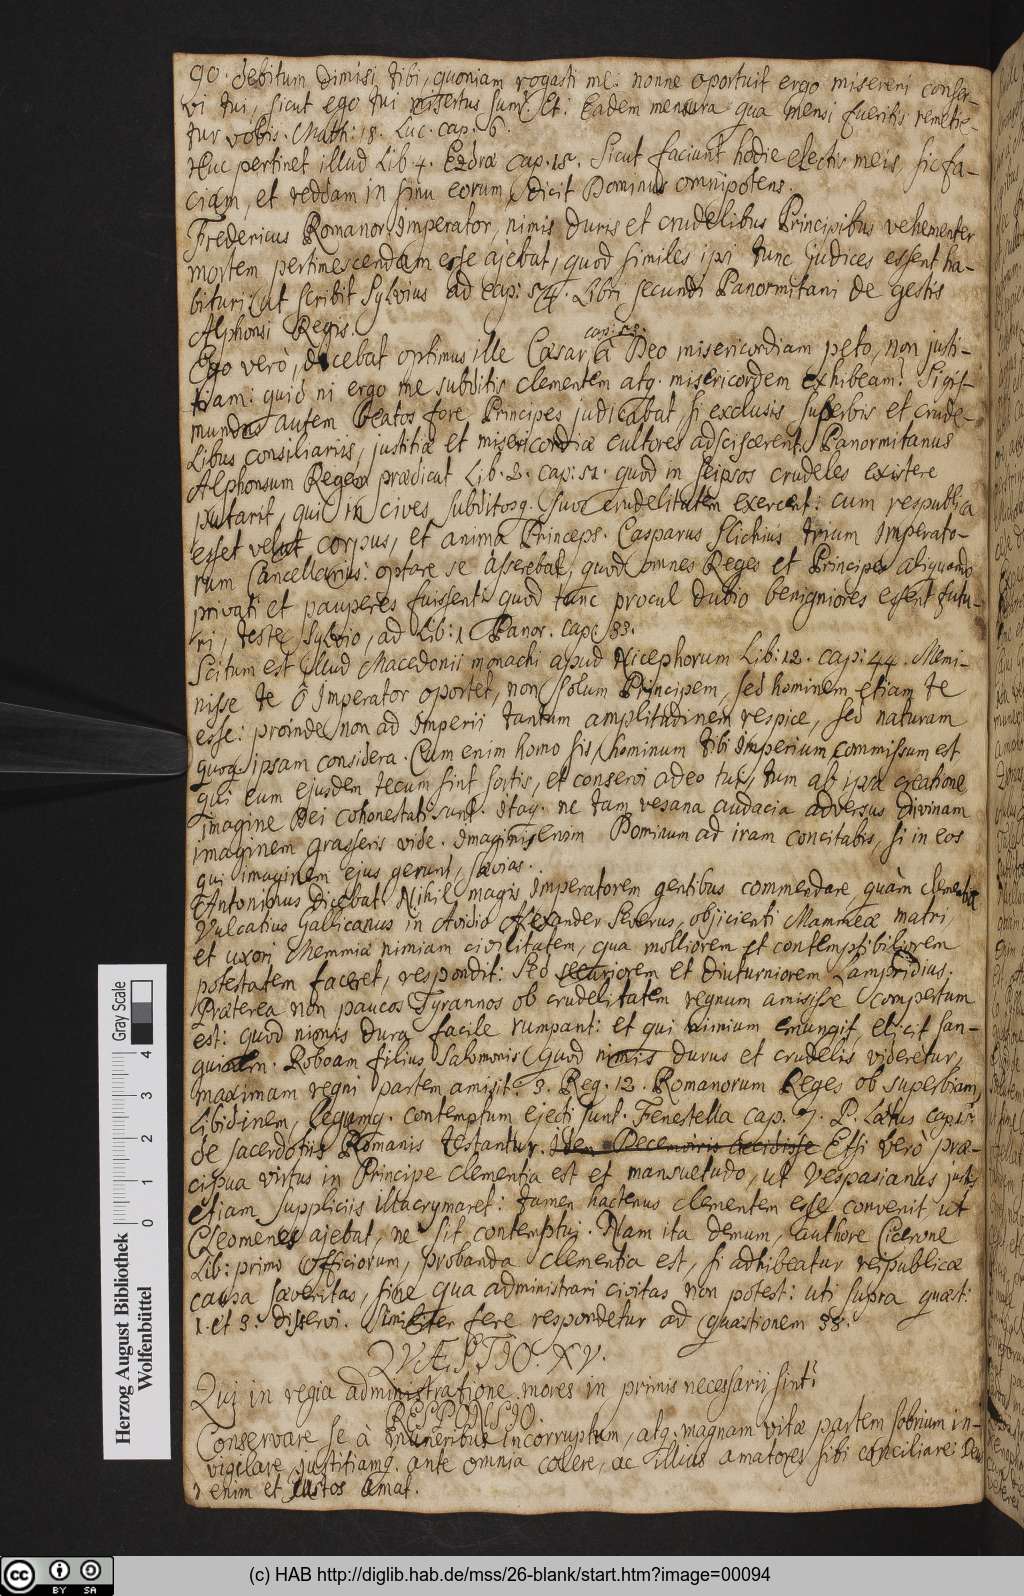 90. debitum dimisi tibi, quoniam rogasti me. nonne oportuit ergo misereri conser-
vi tui, sicut ego tui misertus sum. Et: Eadem mensura qua mensi fueritis remetie-
tur vobis. Math: 18. Luc. cap. 6.
Huc pertinet illud Lib 4. Ezdræ cap. 15. Sicut faciunt hodie electis meis, sic fa-
ciam, et reddam in sinu eorum, dicit Dominus omnipotens.
Fredericus Romanor Imperator, nimis duris et crudelibus Principibus vehementer
mortem pertimescendam esse ajebat, quod similes ipsi tunc judices essent ha-
bituri ut scribit Sylvius ad cap: 54. Libri secundi Panormitani de gestis
Alphonsi Regis.
Ego verò, dicebat optimus ille Cæsar à Deo misericordiam peto, non justi-
tiam: quid ni ergo me subditis clementem atq. misericordem exhibeam? Sigis-
mundus autem beatos fore Principes judicabat si exclusis superbis et crude-
libus consiliariis, justitiæ et misericordiæ cultores adsciscerent. Panormitanus
Alphonsum Regem prædicat Lib. 2. cap: 51. quod in seipsos crudeles existere
putarit, qui in cives, subditosq. suos crudelitatem exercent: cum respublica
esset velut corpus, et anima Princeps. Casparus Slichius trium Imperato-
rum Cancellarius: optare se asserebat, quod omnes Reges et Principes aliquando
privati et pauperes fuissent: quod tunc procul dubio benigniores essent futu-
ri, teste Sylvio, ad Lib: 1 Panor. cap: 33.
Scitum est illud Macedonii monachi apud Nicephorum Lib: 12. cap: 44. Memi-
nisse te ô Imperator oportet, non solum Principem, sed hominem etiam te
esse: proinde non ad Imperii tantum amplitudinem respice, sed naturam
quoq. ipsam considera. Cum enim homo sis, hominum tibi Imperium commissum est
qui cum ejusdem tecum sint sortis, et conservi adeo tui, tum ab ipsa creatione
imagine Dei cohonestati sunt. Itaq. ne tam vesana audacia adversus divinam
imaginem grasseris vide. Imaginis enim Dominum ad iram concitabis, si in eos
qui imaginem ejus gerunt, sævias.
Antoninus dicebat Nihil magis Imperatorem gentibus commendare quàm clementia
Vulcatius Gallicanus in Avidio Alexander Severus, objicienti Mammeæ matri,
et uxori Memmiæ nimiam civilitatem, qua molliorem et contemptibiliorem
potestatem faceret, respondit: Sed securiorem et diuturniorem Lampridius.
Præterea non paucos Tyrannos ob crudelitatem regnum amisisse compertum
est: quod nimis dura facile rumpant: et qui nimium emungit, elicit san-
guinem. Roboam filius Salomonis quod nimis durus et crudelis videretur,
maximam regni partem amisit. 3. Reg. 12. Romanorum Reges ob superbiam
libidinem, legumq. contemptum ejecti sunt. Fenestella cap. 7. P. Lætus
de sacerdotiis Romanis testantur. Etsi verò præ-
cipua virtus in Principe clementia est et mansuetudo, ut Vespasianus justis
etiam suppliciis illacrymaret: tamen hactenus clementem esse convenit ut
Cleomenes ajebat, ne sit contemptui. Nam ita demum, authore Cicerone
Lib: primo Officiorum, probanda clementia est, si adhibeatur reipublicæ
causa sæveritas, sine qua administrari civitas non potest: uti supra quæst:
1. et 3. disserui. Similiter fere respondetur ad quæstionem 38.
QVÆSTIO. XV.
Qui in regia administratione mores in primis necessarij sint?
RESPONSIO.
Conservare se à muneribus incorruptum, atq. magnam vitæ partem sobrium in-
vigilare justitiamq. ante omnia colere, ac illius amatores sibi conciliare. Deus
enim et justos amat.
Gray Scale
4
3
2
1
0
Herzog August Bibliothek
Wolfenbüttel
cc BY SA
(c) HAB http://diglib.hab.de/mss/26-blank/start.htm?image=00094